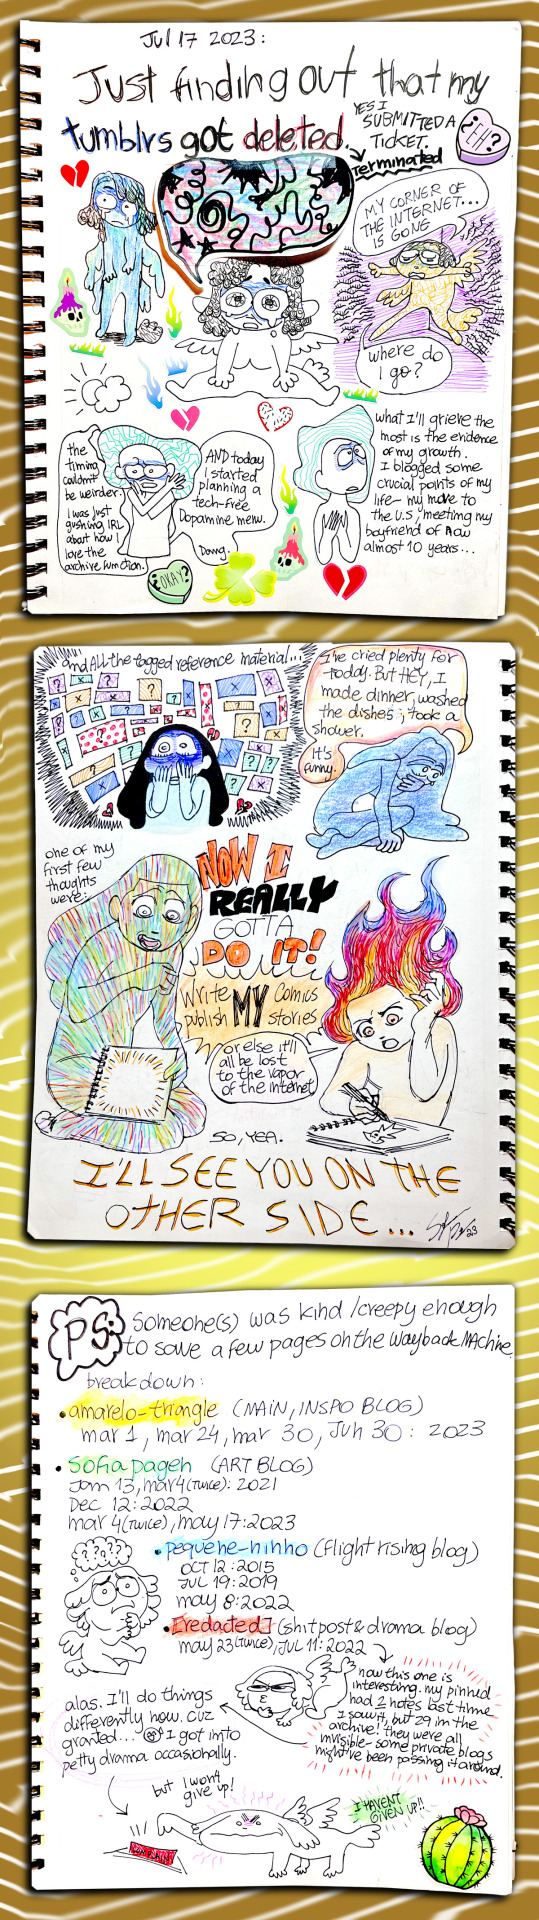 Jul 17 2023:
Just finding out that my
tumblrs got deleted.
YES I
SUBMITTED A
TICKET.
Terminated
¿EH?
MY CORNER OF
THE INTERNET...
IS GONE
where do
I go?
the
timing
couldn't
be weirder.
I was just
gushing IRL
about how I
love the
archive function.
AND today
I started
planning a
tech-free
Dopamine menu.
Dang.
¿OKAY?
what I'll grieve the
most is the evidence
of my growth.
I blogged some
crucial points of my
life - my move to
the U.S, meeting my
boyfriend of now
almost 10 years...
and ALL the tagged reference material...
I've cried plenty for
today. But HEY, I
made dinner, washed
the dishes, took a
shower.
It's
funny.
one of my
first few
thoughts
were:
NOW I
REALLY
GOTTA
DO IT!
Write MY Comics
publish stories
or else it'll
all be lost
to the vapor
of the internet
so, yea.
I'LL SEE YOU ON THE
OTHER SIDE...
PS:
Someone(s) was kind/creepy enough
to save a few pages on the Wayback Machine.
breakdown:
• amarelo-triangle (MAIN, INSPO BLOG)
mar 1, mar 24, mar 30, Jun 30: 2023
• Sofia pageh (ART BLOG)
Jan 13, mar 4 (twice): 2021
Dec 12: 2022
mar 4 (twice), may 17: 2023
• pequene-ninho (flight rising blog)
OCT 12: 2015
JUL 19: 2019
may 8: 2022
• [redacted] (shitpost & drama blog)
may 23 (twice), JUL 11: 2022
????
now this one is
interesting. my pinned
had 2 notes last time
I saw it, but 29 in the
archive! they were all
invisible - some private blogs
might've been passing it around.
alas. I'll do things
differently now. cuz
granted... I got into
petty drama occasionally.
but I won't
give up!
I HAVEN'T
GIVEN UP!!